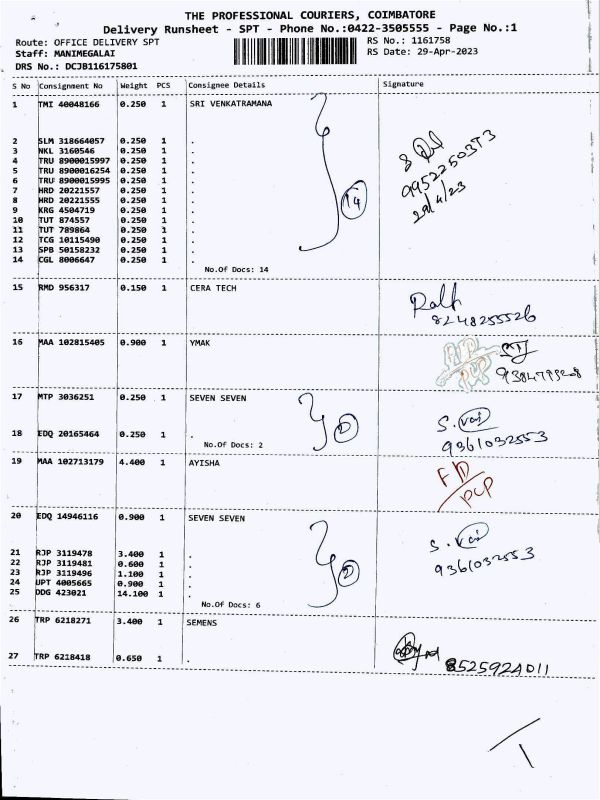 THE PROFESSIONAL COURIERS, COIMBATORE
Delivery Runsheet - SPT - Phone No.:0422-3505555 - Page No.:1
Route: OFFICE DELIVERY SPT RS No.: 1161758
Staff: MANIMEGALAI RS Date: 29-Apr-2023
DRS No.: DCJB116175801
S No Consignment No Weight PCS Consignee Details Signature
1 TMI 40048166 0.250 1 SRI VENKATRAMANA
2 SLM 318664057 0.250 1 .
3 NKL 3160546 0.250 1 .
4 TRU 8900015997 0.250 1 .
5 TRU 8900016254 0.250 1 .
6 TRU 8900015995 0.250 1 .
7 HRD 20221557 0.250 1 .
8 HRD 20221555 0.250 1 .
9 KRG 4504719 0.250 1 .
10 TUT 874557 0.250 1 .
11 TUT 789864 0.250 1 .
12 TCG 10115490 0.250 1 .
13 SPB 50158232 0.250 1 .
14 CGL 8006647 0.250 1 .
14
9952250373
29/4/23
No.Of Docs: 14
15 RMD 956317 0.150 1 CERA TECH
8248255526
16 MAA 102815405 0.900 1 YMAK
FID
PCP
17 MTP 3036251 0.250 1 SEVEN SEVEN
18 EDQ 20165464 0.250 1 .
2
9361032553
No.Of Docs: 2
19 MAA 102713179 4.400 1 AYISHA
FID
PCP
20 EDQ 14946116 0.900 1 SEVEN SEVEN
21 RJP 3119478 3.400 1 .
22 RJP 3119481 0.600 1 .
23 RJP 3119496 1.100 1 .
24 UPT 4005665 0.900 1 .
25 DDG 423021 14.100 1 .
9361032553
No.Of Docs: 6
26 TRP 6218271 3.400 1 SEMENS
27 TRP 6218418 0.650 1 .
8525924011